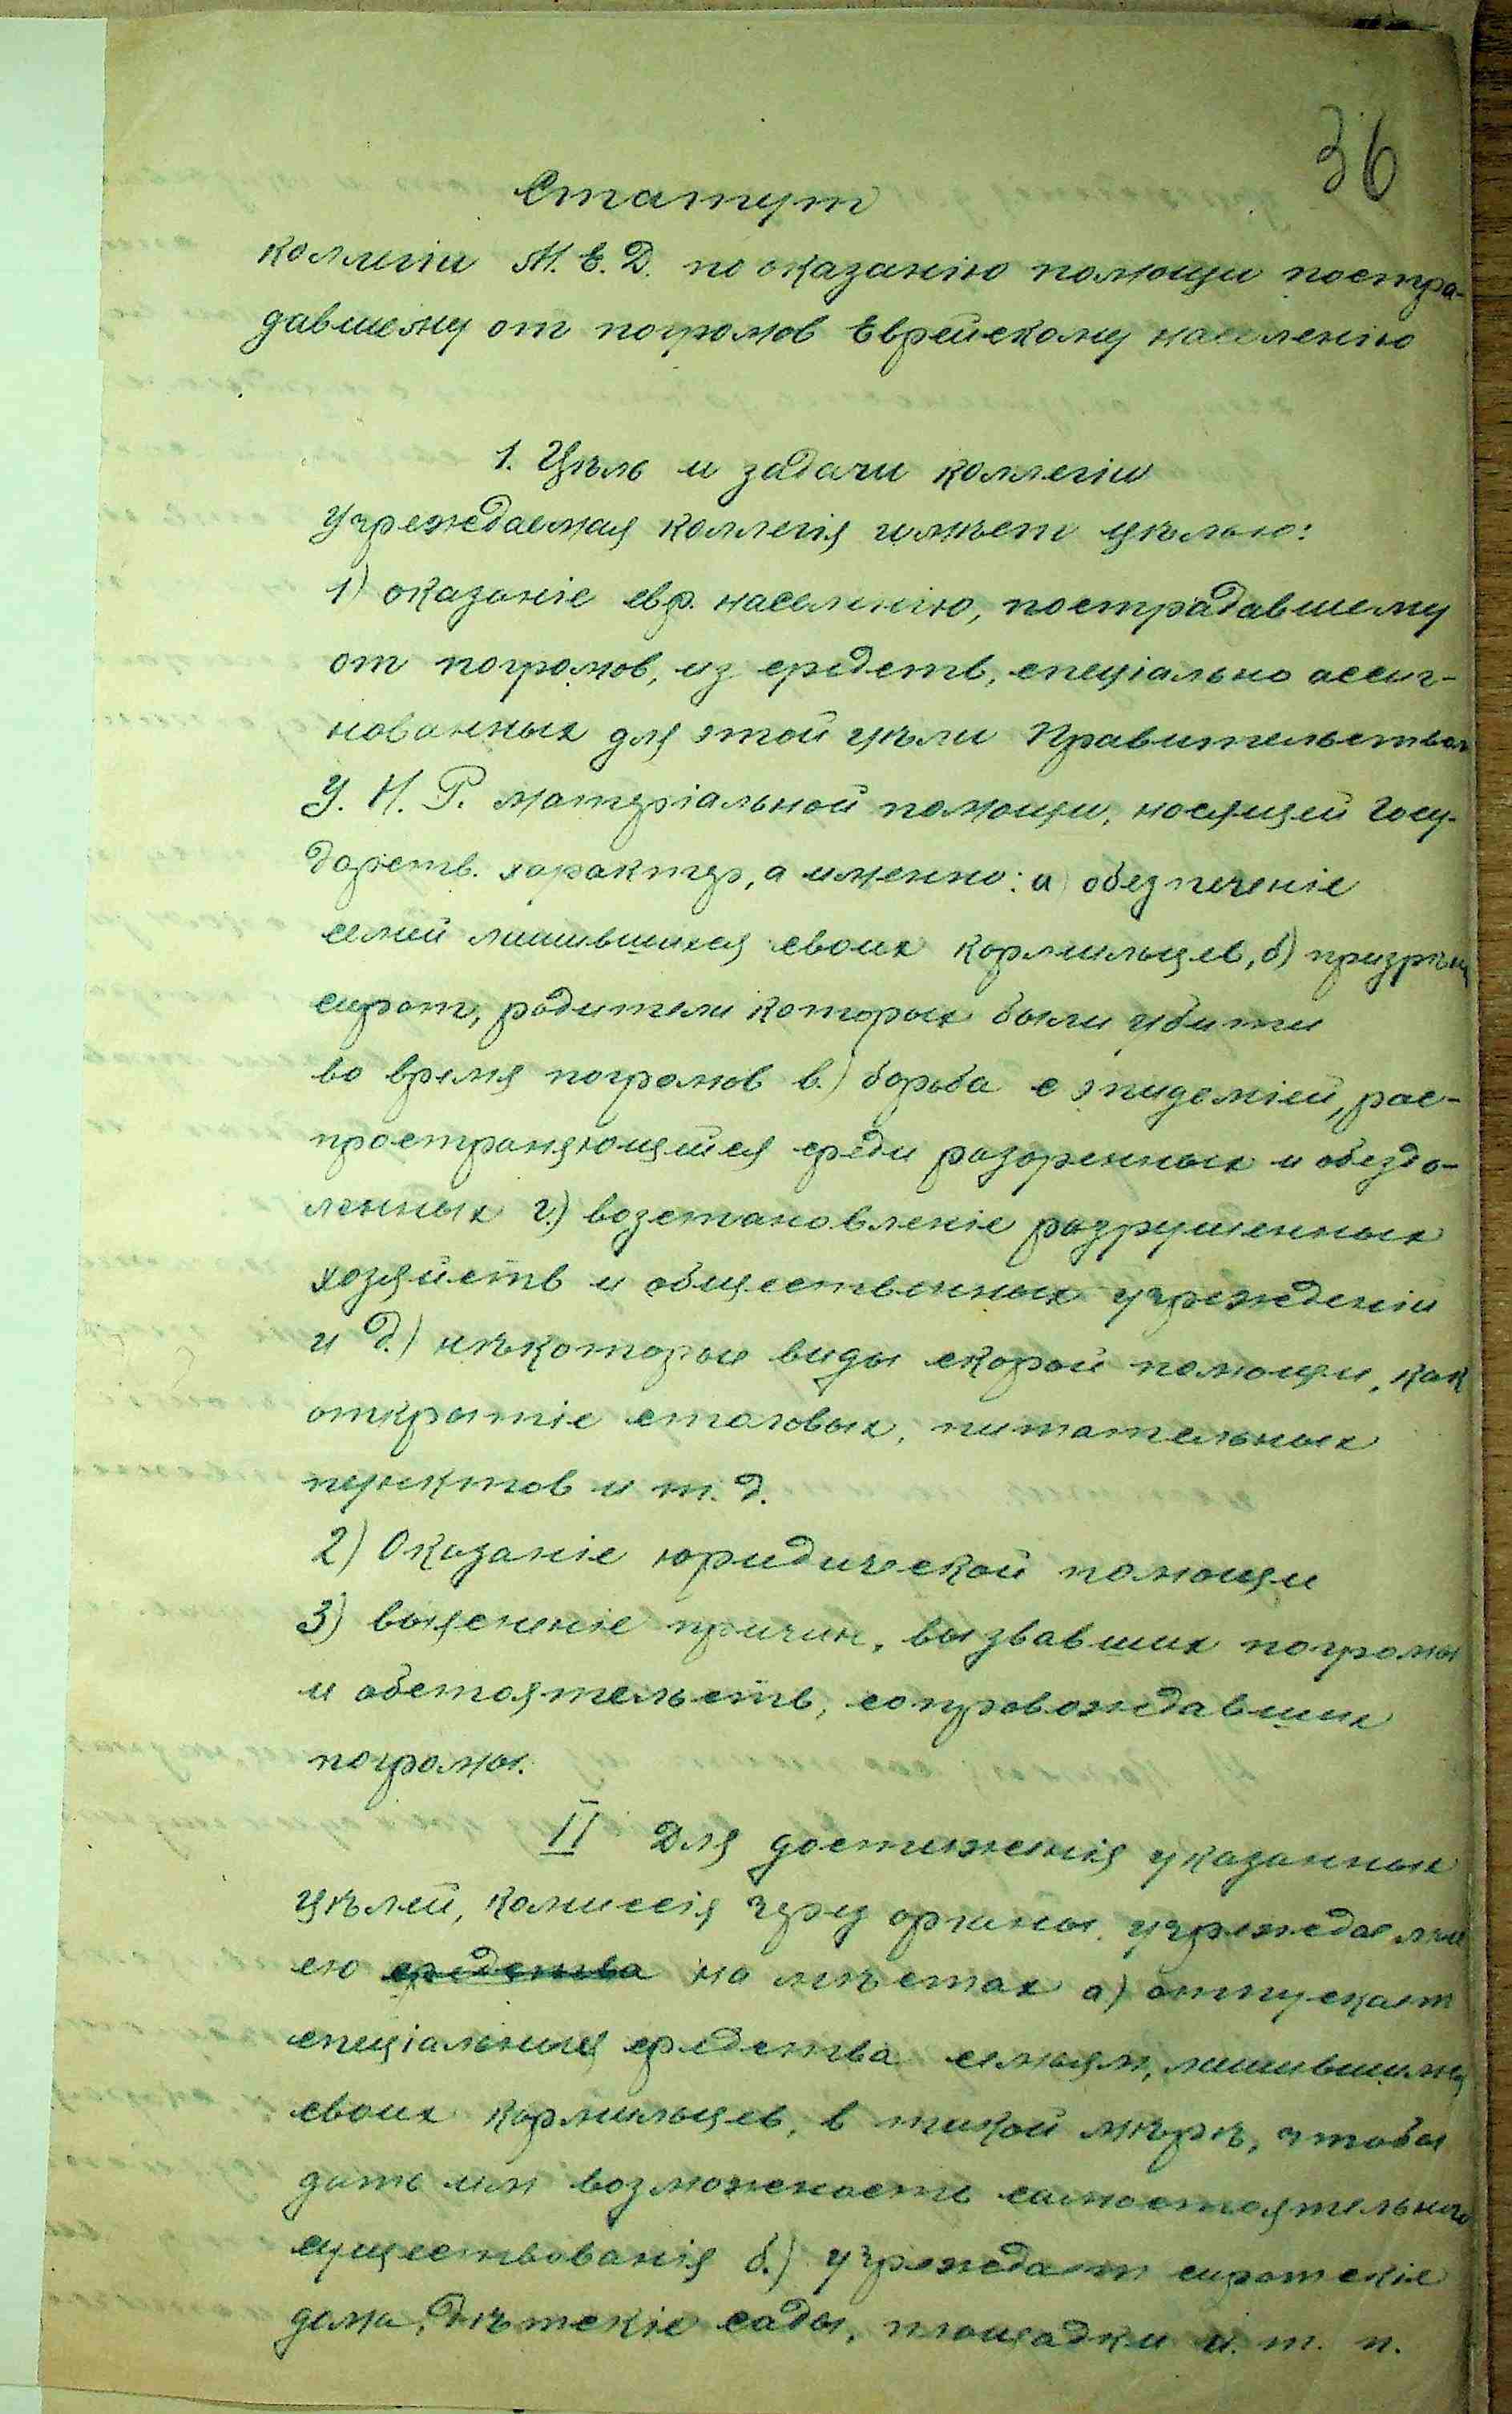 36
Статут
Коллегіи М. Е. Д. по оказанію помощи постра-
давшему от погромов Еврейскому населенію
1. Цѣль и задачи коллегіи
Учреждаемая коллегія имѣет цѣлью:
1) оказаніе евр. населенію, пострадавшему
от погромов, из средств, спеціально ассиг-
нованных для этой цѣли Правительством
У. Н. Р. матеріальной помощи, носящей Госу-
дарств. характер, а именно: а) обезпеченіе
семей лишившихся своих кормильцев, б) призрѣн
сирот, родители которых были убиты
во время погромов в.) борьба с эпидеміей, рас-
пространяющейся среди разоренных и обездо-
ленных г.) возстановленіе разрушенных
хозяйств и общественных учрежденій
и д.) нѣкоторые виды скорой помощи, как
открытіе столовых, питательных
пунктов и т. д.
2) Оказаніе юридической помощи
3) выясненіе причин, вызвавших погромы
и обстоятельств, сопровождавших
погромы.
II Для достиженія указанных
цѣлей, комиссія чрез органы, учреждаемые
ею средства на мѣстах а) отпускает
спеціальныя средства семьям, лишившимся
своих кормильцев, в такой мѣрѣ, чтобы
дать им возможность самостоятельнаго
существованія б.) учреждает сиротскіе
дома, дѣтскіе сады, площадки и. т. п.